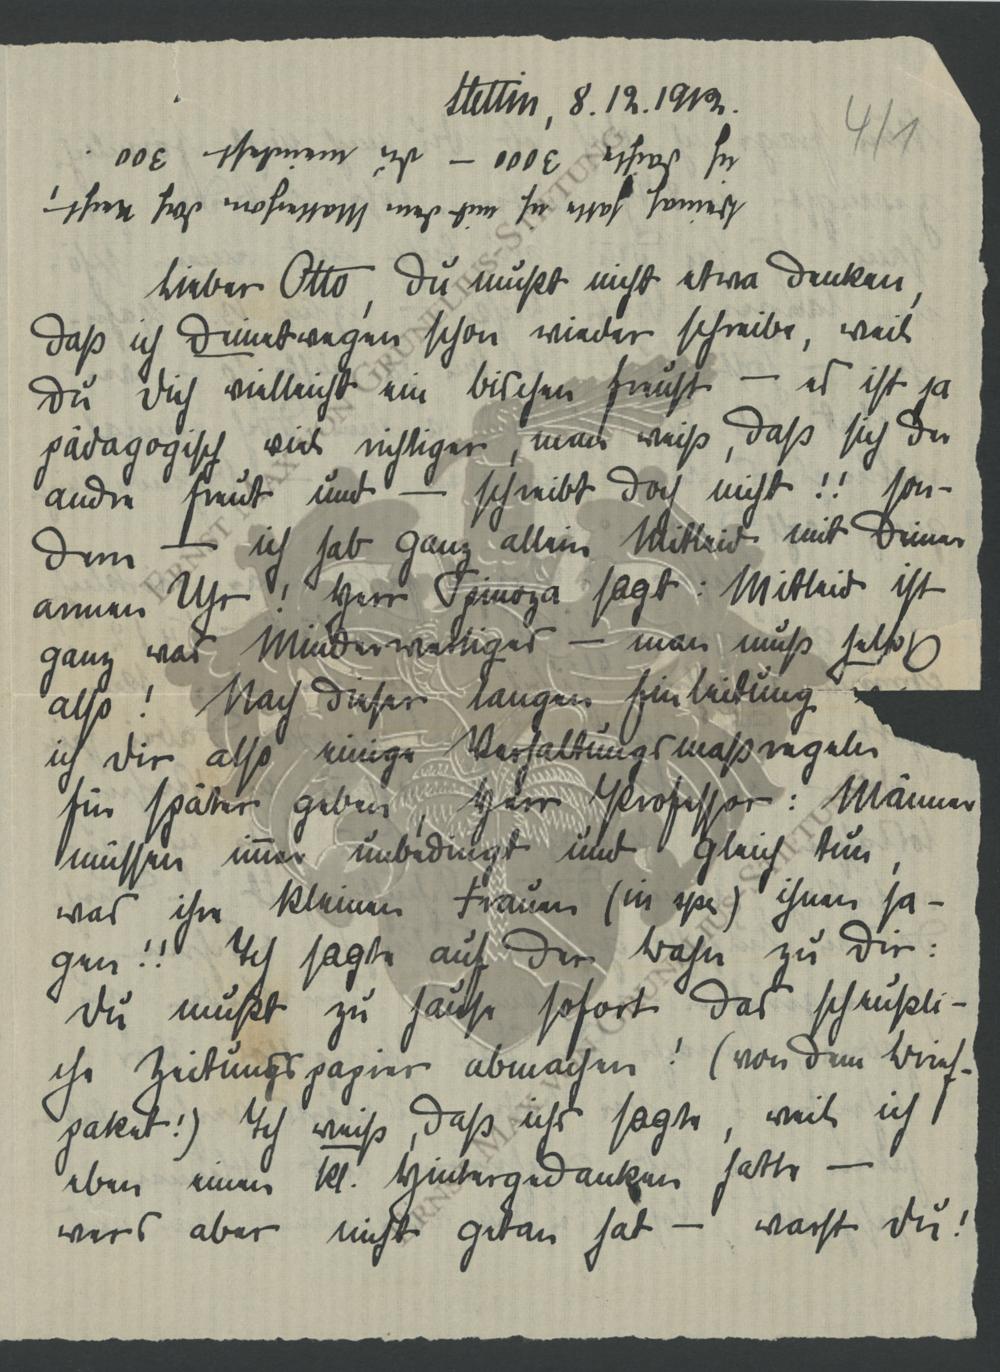 Stettin, 8.12.1912.
4/1
Beinah hatte ich mit dem Matterhorn doch Recht!
ich dachte 3000 — Du meintest 300.
Lieber Otto, Du mußt nicht etwa denken,
daß ich Deinetwegen schon wieder schreibe, weil
Du Dich vielleicht ein bischen freust — es ist ja
pädagogisch viel richtiger, man weiß, daß sich der
andre freut und — schreibt doch nicht!! son-
dern — ich hab ganz allein Mitleid mit Deiner
armen Uhr! Herr Spinoza sagt: Mitleid ist
ganz was Minderwertiges — man muß helfen
also! Nach dieser langen Einleitung
ich Dir also einige Verhaltungsmaßregeln
für später geben, Herr Professor: Männer
müssen immer unbedingt und gleich tun,
was ihre kleinen Frauen (in spe) ihnen sa-
gen!! Ich sagte auf der Bahn zu Dir:
Du mußt zu Hause sofort das scheußli-
che Zeitungspapier abmachen! (von dem Brief-
paket!) Ich weiß, daß ichs sagte, weil ich
eben einen kl. Hintergedanken hatte —
wers aber nicht getan hat — warst Du!
ERNST MAX VON GRUNELIUS-STIFTUNG
ERNST MAX VON GRUNELIUS-STIFTUNG